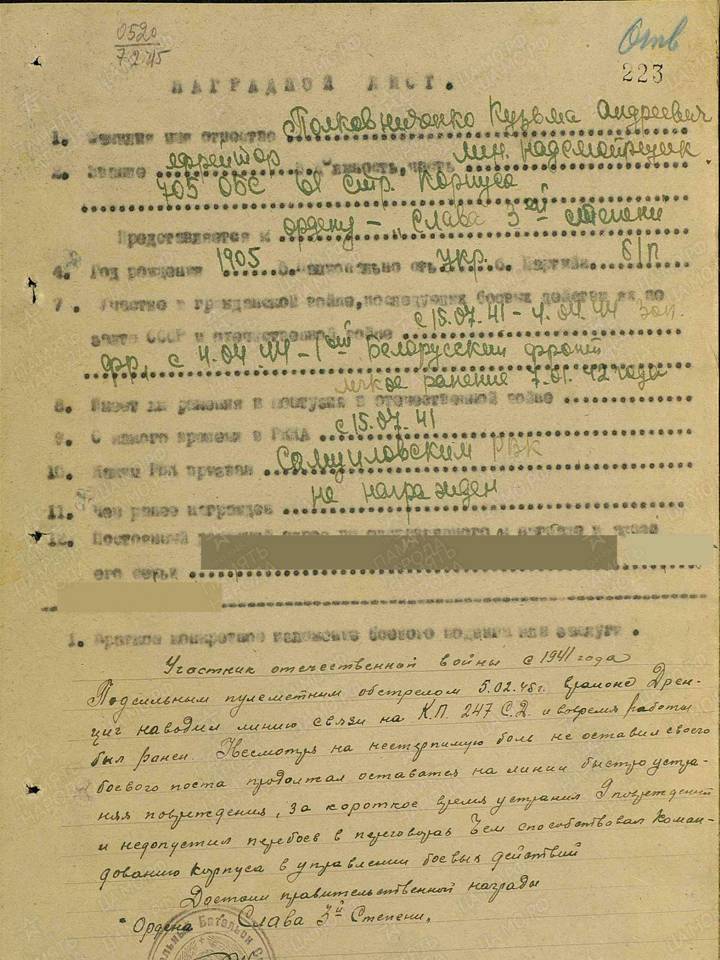 0520
7.2.45
Отв
223
НАГРАДНОЙ ЛИСТ.
1. Фамилия имя отчество Полковниченко Кузьма Андреевич
2. Звание ефрейтор 3. Должность, часть лин. надсмотрщик
705 ОБС 61 стр. Корпуса
Представляется к ордену – „Слава 3ей степени
4. Год рождения 1905 5. Национальность Укр. 6. Партийн. б/п
7. Участие в гражданской войне, последующих боевых действиях по
защите СССР и отечественной войне с 15.07.41 – 4.04.44 Зап.
фр. с 4.04.44 – 1ый Белорусский фронт
легкое ранение 7.01.42 года
8. Имеет ли ранения и контузии в отечественной войне
9. С какого времени в РККА с 15.07.41
10. Каким РВК призван РВК
11. Чем ранее награжден не награжден
12. Постоянный и адрес
его семьи
1. Краткое конкретное изложение боевого подвига или заслуги.
Участник отечественной войны с 1941 года
Подсильным пулеметним обстрелом 5.02.45г. врайоне Дрен-
циг наводил линию связи на К.П. 247 С.Д. и вовремя работы
был ранен. Несмотря на нестерпимую боль не оставил своего
боевого поста продолжал оставатся на линии быстро устра-
няя повреждения, за короткое время устранил 9 повреждений
и недопустил перебоев в переговорах Чем способствовал Коман-
дованию Корпуса в управлении боевых действий
Достоин правительственной награды
Ордена Слава 3й Степени.